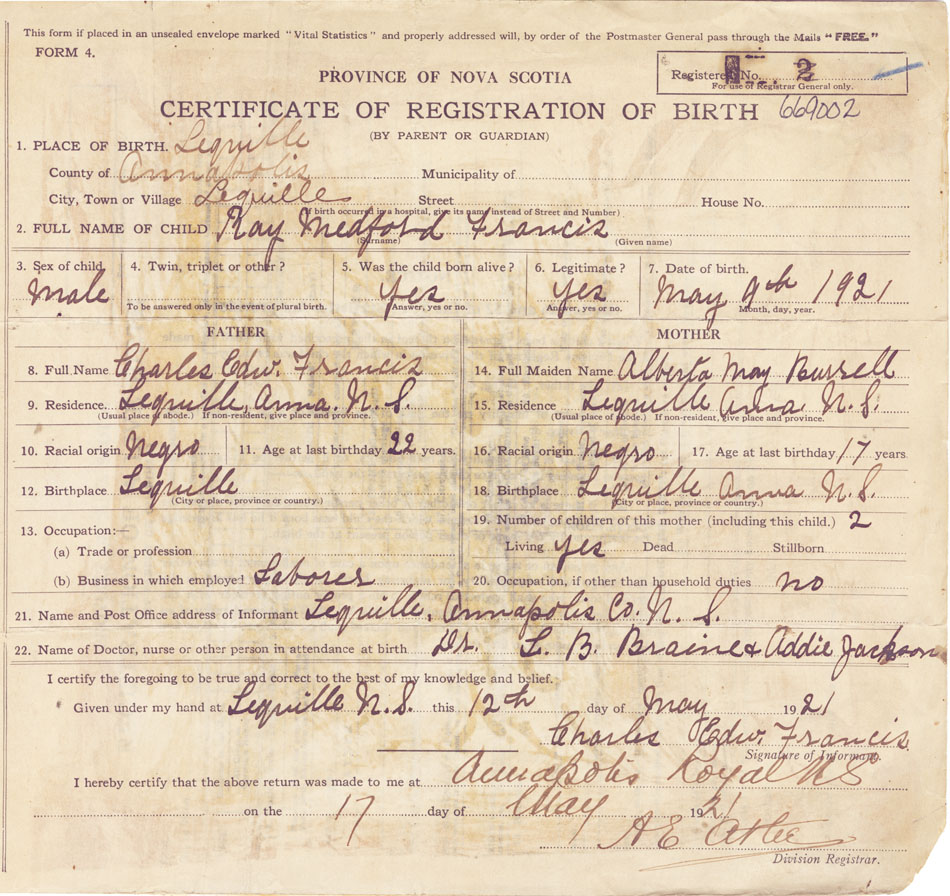 This form if placed in an unsealed envelope marked "Vital Statistics" and properly addressed will, by order of the Postmaster General pass through the Mails "FREE."
FORM 4.
PROVINCE OF NOVA SCOTIA
Registered No. 2
For use of Registrar General only.
CERTIFICATE OF REGISTRATION OF BIRTH 669002
(BY PARENT OR GUARDIAN)
1. PLACE OF BIRTH. Lequille
County of Annapolis Municipality of
City, Town or Village Lequille Street House No.
(If birth occurred in a hospital, give its name instead of Street and Number)
2. FULL NAME OF CHILD Ray Medford Francis
(Surname) (Given name)
3. Sex of child 4. Twin, triplet or other? 5. Was the child born alive? 6. Legitimate? 7. Date of birth.
male yes yes May 9th 1921
To be answered only in the event of plural birth. Answer, yes or no. Answer, yes or no. Month, day, year.
FATHER MOTHER
8. Full Name Charles Edw. Francis 14. Full Maiden Name Alberta May Burrell
9. Residence. Lequille, Anna. N. S. 15. Residence Lequille Anna N. S.
(Usual place of abode.) If non-resident, give place and province. (Usual place of abode.) If non-resident, give place and province.
10. Racial origin Negro 11. Age at last birthday 22 years. 16. Racial origin Negro 17. Age at last birthday 17 years
12. Birthplace Lequille 18. Birthplace Lequille Anna N. S.
(City or place, province or country.) (City or place, province or country.)
13. Occupation:— 19. Number of children of this mother (including this child.) 2
(a) Trade or profession Living yes Dead Stillborn
(b) Business in which employed Laborer 20. Occupation, if other than household duties no
21. Name and Post Office address of Informant Lequille, Annapolis Co. N. S.
22. Name of Doctor, nurse or other person in attendance at birth Dr. L. B. Braine & Addie Jackson
I certify the foregoing to be true and correct to the best of my knowledge and belief.
Given under my hand at Lequille N.S. this 12th day of May 1921
Charles Edw. Francis
Signature of Informant.
I hereby certify that the above return was made to me at Annapolis Royal NS
on the 17 day of May 1921
A E
Division Registrar.